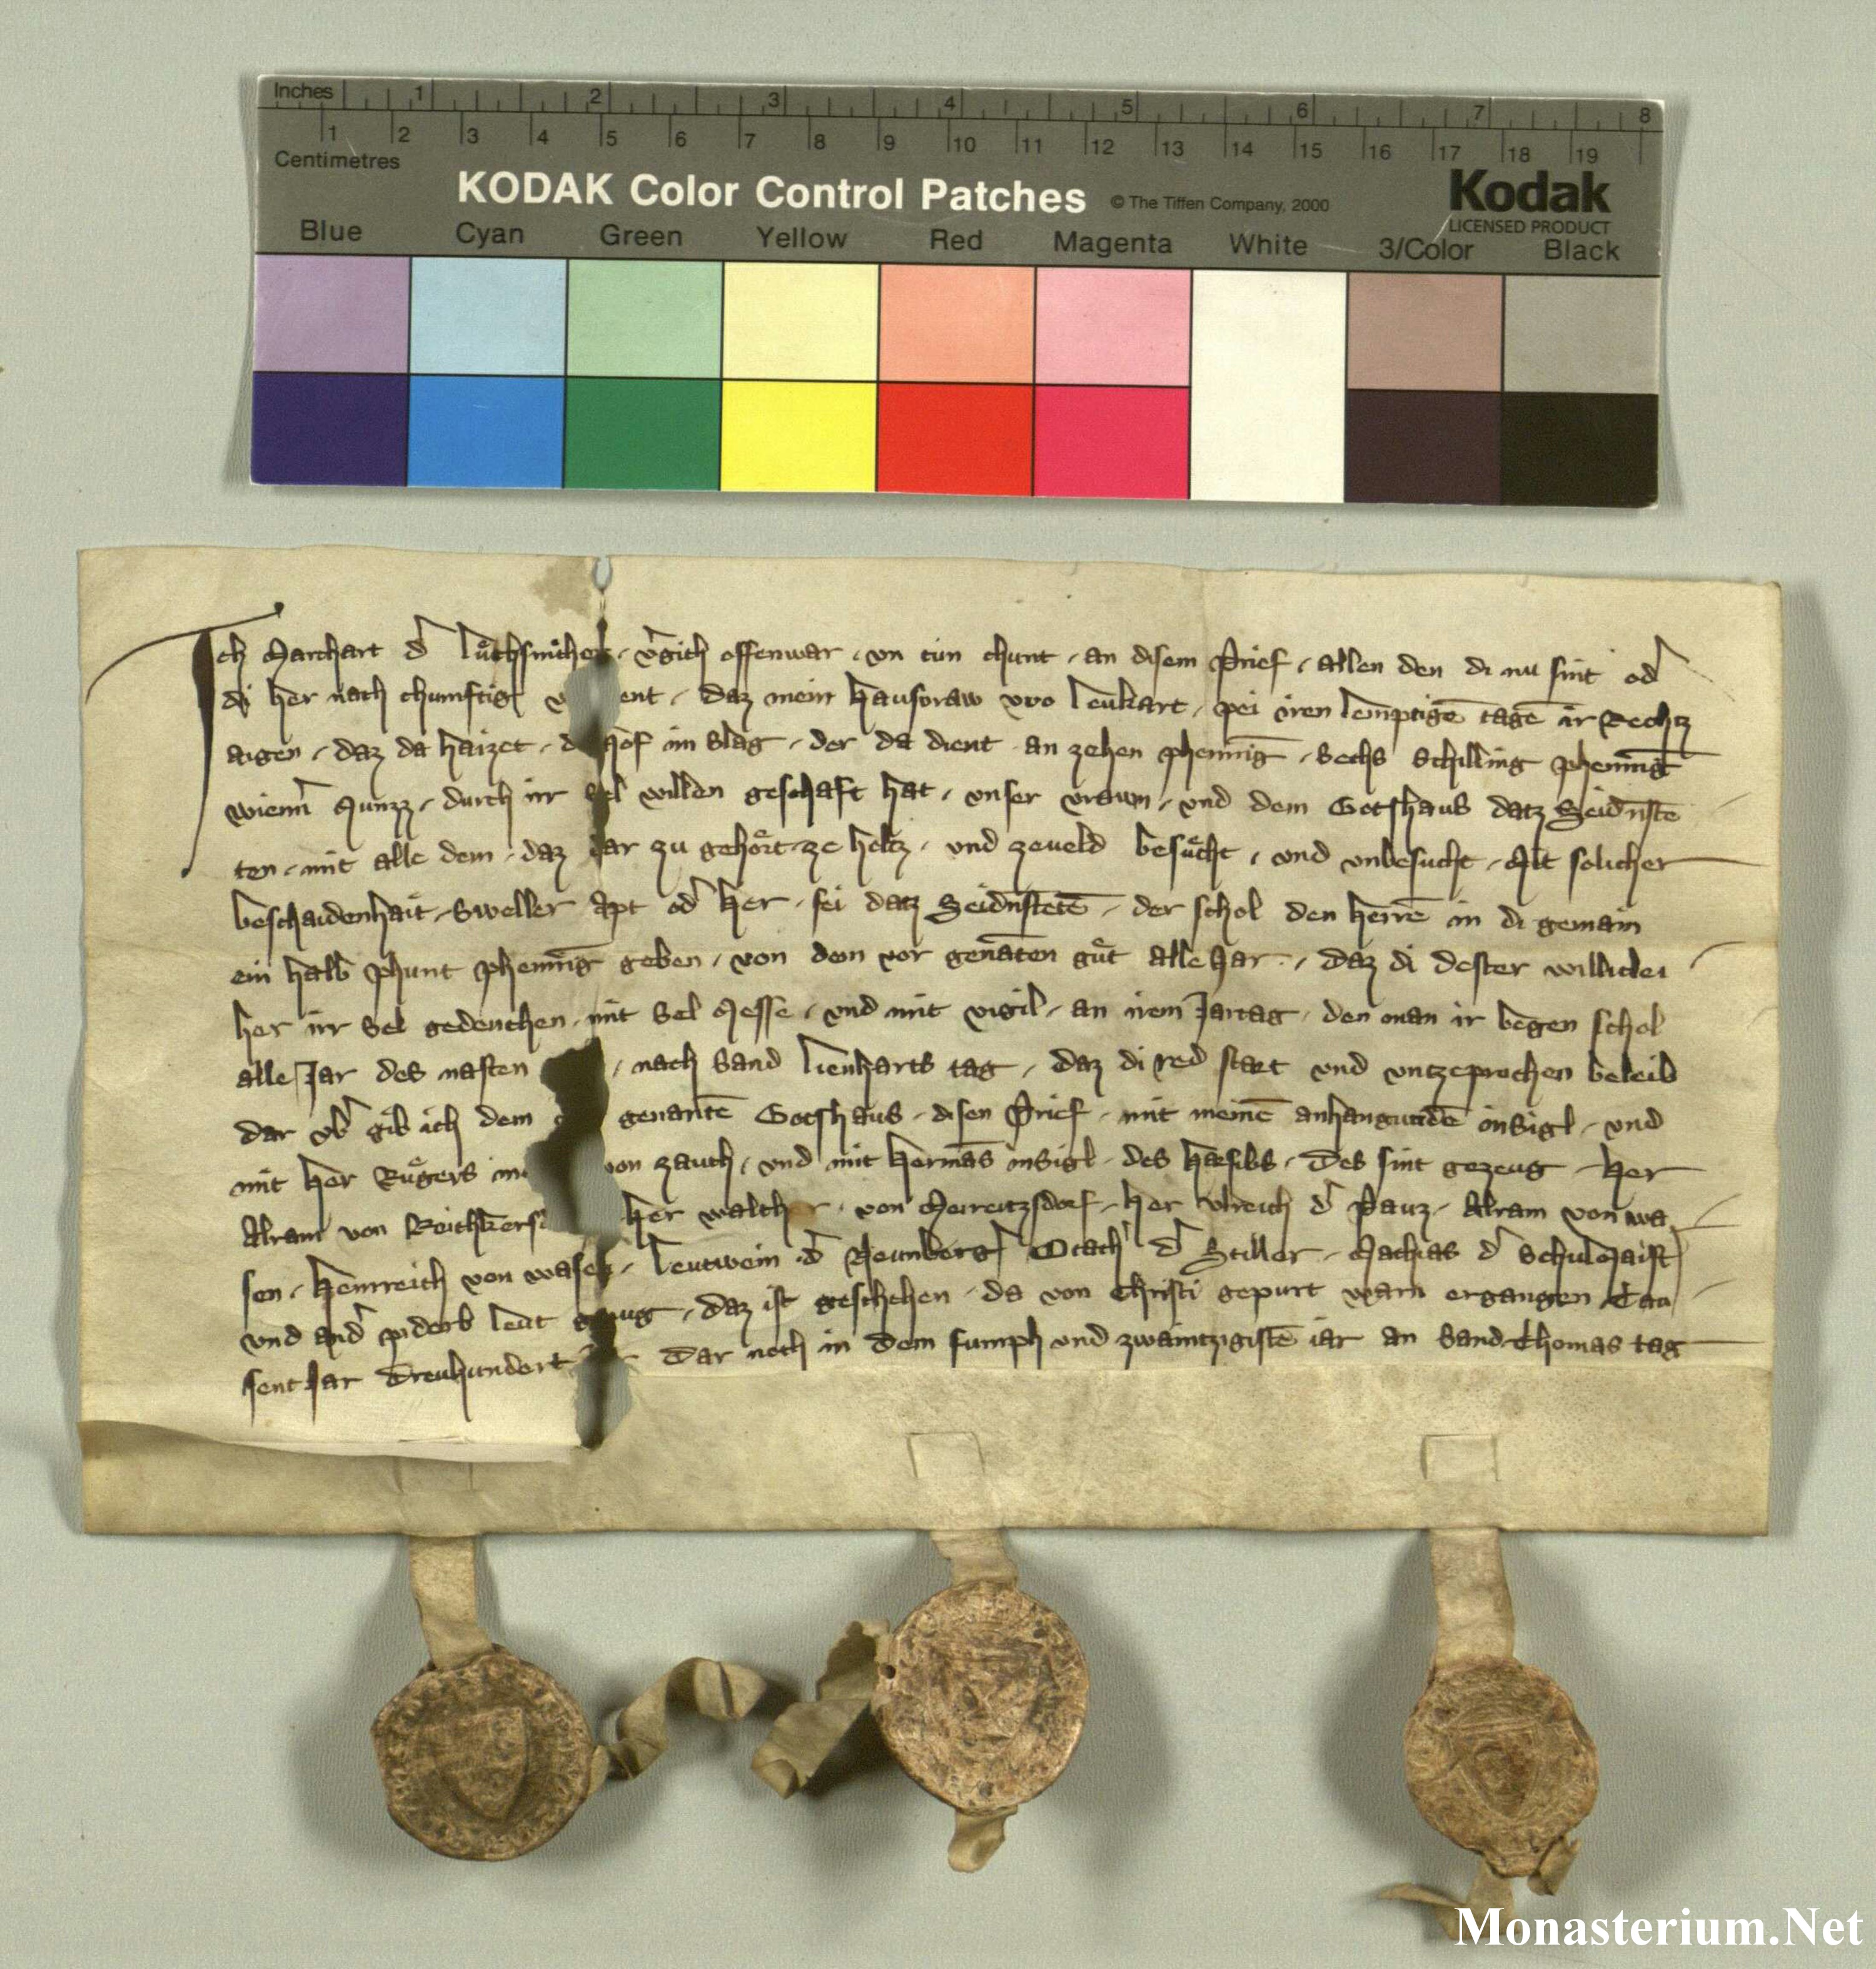 Inches 1 2 3 4 5 6 7 8
1 2 3 4 5 6 7 8 9 10 11 12 13 14 15 16 17 18 19
Centimetres
KODAK Color Control Patches © The Tiffen Company, 2000 Kodak
LICENSED PRODUCT
Blue Cyan Green Yellow Red Magenta White 3/Color Black
Ich Marchart d̾ v̾gich offenwar · vn tun chunt · an disem Prief · allen den di nu sint od̾
di her nach chumftig ent · daz mein hausvraw vro Leukart · pei iren lemptigē tagē ir Rechtz
aigen · daz da haizet · hof im Slag · der da dient an zehen phennīg · Sechs Schilling phennīg
wienn̾ Munzz · durch ir Sel willen geschaft hat · vnser vrawn · vnd dem Gotshaus datz Seidn̄ste
ten · mit alle dem · daz dar zu gehoͤrt · ze holtz · vnd zeueld besuͤcht · vnd vnbesucht · Mit solicher
beschaidenhait · Sweller Apt od̾ her · sei datz Seidn̄stetē · der schol den herrē in di gemain
ein halb phunt phennīg geben · von dem vor genāten guͤt alle Jar · daz di dester williclei
her ir Sel gedenchen · mit Sel Messe · vnd mit vigil · an irem Jartag · den man ir begen schol
alle Jar des nasten · nach Sand Lienharts tag · daz di red staet vnd vntzeprochen beleib
dar vb̾ gib ich dem genantē Gotshaus · disen Prief · mit meinē anhangundē insigl · vnd
mit her Ruͤgers von zauch · vnd mit hermās insigl · des · Des sint gezeug · her
Alram von her walther · von · her vlreich d̾ Pauz · Alram von wa
sen · heinreich von wasen · Leutwein d̾ Otach̾ d̾ Stiller · Mathias d̾ Schulmaist̾
vnd and̾ piderb leut genug · daz ist geschehen · da von Christi gepurt warn ergangen Tau
sent Jar Dreuhundert Jar dar noch in dem fumph vnd zwaintzigistē iar an Sand Thomas tag
Monasterium.Net